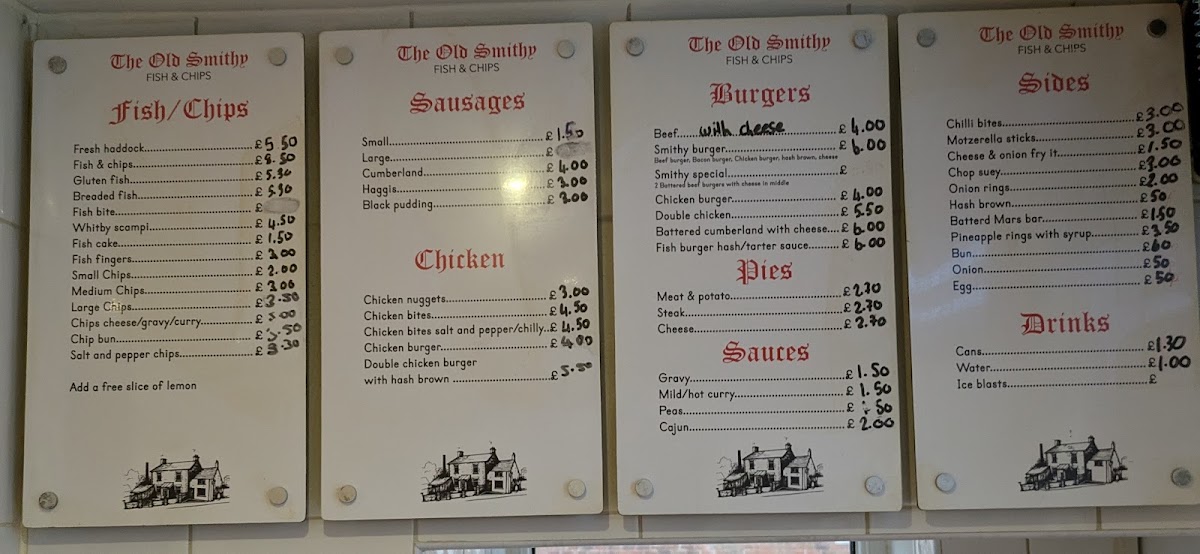 The Old Smithy
FISH & CHIPS
Fish/Chips
Fresh haddock £ 5 50
Fish & chips £ 8.50
Gluten fish £ 5.30
Breaded fish £ 5.30
Fish bite £
Whitby scampi £ 4.50
Fish cake £ 1.50
Fish fingers £ 3.00
Small Chips £ 2.00
Medium Chips £ 3.00
Large Chips £ 3.50
Chips cheese/gravy/curry £ 5.00
Chip bun £ 3.50
Salt and pepper chips £ 3.30
Add a free slice of lemon
The Old Smithy
FISH & CHIPS
Sausages
Small £ 1.50
Large £
Cumberland £ 4.00
Haggis £ 3.00
Black pudding £ 3.00
Chicken
Chicken nuggets £ 3.00
Chicken bites £ 4.50
Chicken bites salt and pepper/chilly £ 4.50
Chicken burger £ 4.00
Double chicken burger
with hash brown £ 5.50
The Old Smithy
FISH & CHIPS
Burgers
Beef with cheese £ 4.00
Smithy burger £ 6.00
Beef burger, Bacon burger, Chicken burger, hash brown, cheese
Smithy special £
2 Battered beef burgers with cheese in middle
Chicken burger £ 4.00
Double chicken £ 5.50
Battered cumberland with cheese £ 6.00
Fish burger hash/tarter sauce £ 6.00
Pies
Meat & potato £ 2.70
Steak £ 2.70
Cheese £ 2.70
Sauces
Gravy £ 1.50
Mild/hot curry £ 1.50
Peas £ 50
Cajun £ 2.00
The Old Smithy
FISH & CHIPS
Sides
Chilli bites £ 3.00
Motzerella sticks £ 3.00
Cheese & onion fry it £ 1.50
Chop suey £ 3.00
Onion rings £ 2.00
Hash brown £ 50
Batterd Mars bar £ 1.50
Pineapple rings with syrup £ 3.50
Bun £ 60
Onion £ 50
Egg £ 50
Drinks
Cans £ 1.30
Water £ 1.00
Ice blasts £